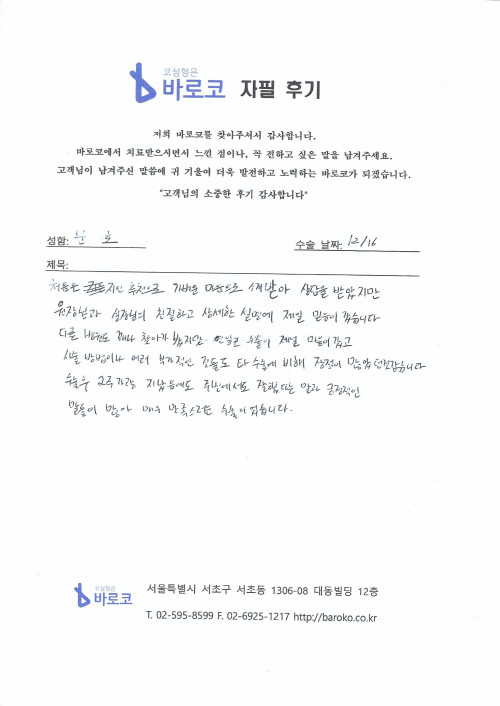 코성형은
바로코 자필 후기
저희 바로코를 찾아주셔서 감사합니다.
바로코에서 치료받으시면서 느낀 점이나, 꼭 전하고 싶은 말을 남겨주세요.
고객님이 남겨주신 말씀에 귀 기울여 더욱 발전하고 노력하는 바로코가 되겠습니다.
"고객님의 소중한 후기 감사합니다"
성함: 호 수술 날짜: 12/16
제목:
처음은 지인 추천으로 가벼운 마음으로 소개받아 상담을 받았지만
원장님과 실장님의 친절하고 상세한 설명에 제일 믿음이 갔습니다
다른 병원도 찾아가 봤지만 수술이 제일 믿음이 갔고
시술 방법이나 여러 부가적인 것들도 타 수술에 비해 장점이 많았던것같습니다
수술후 2주가량 지났음에도 주변에서도 잘됐다는 말과 긍정적인
말들이 많아 매우 만족스러운 수술이 었습니다.
코성형은
바로코
서울특별시 서초구 서초동 1306-08 대동빌딩 12층
T. 02-595-8599 F. 02-6925-1217 http://baroko.co.kr